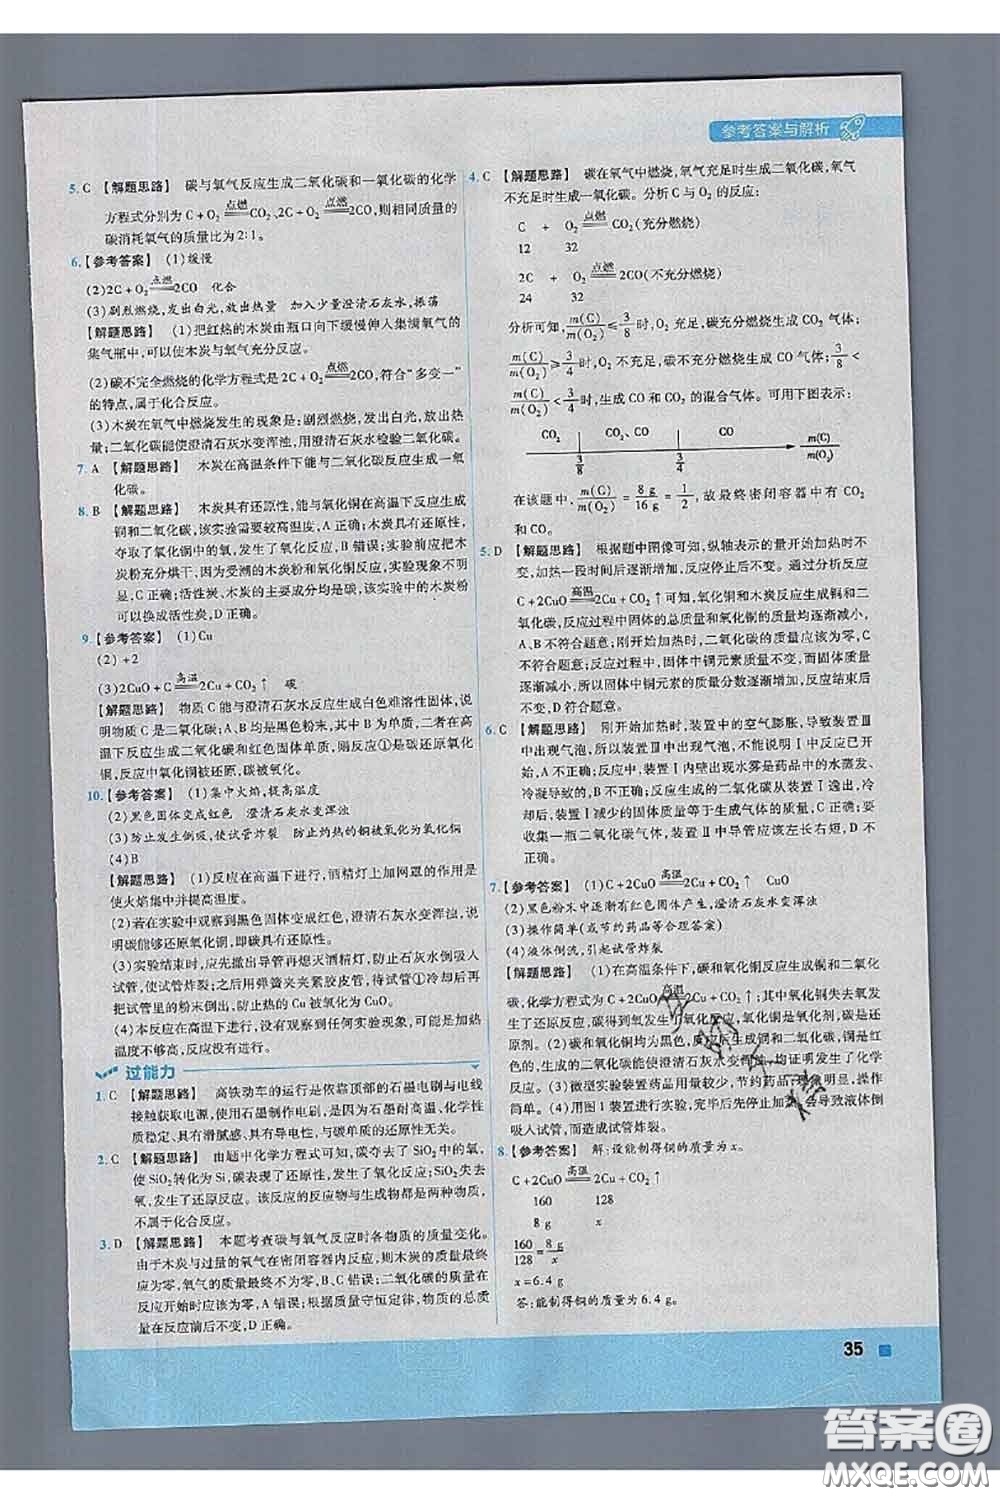 参考答案与解析
5. C 【解题思路】 碳与氧气反应生成二氧化碳和一氧化碳的化学
方程式分别为 C + O₂ 点燃══CO₂、2C + O₂ 点燃══2CO,则相同质量的
碳消耗氧气的质量比为 2∶1。
6.【参考答案】 (1)缓慢
(2)2C + O₂ 点燃══2CO 化合
(3)剧烈燃烧,发出白光,放出热量 加入少量澄清石灰水,振荡
【解题思路】 (1)把红热的木炭由瓶口向下缓慢伸入集满氧气的
集气瓶中,可以使木炭与氧气充分反应。
(2)碳不完全燃烧的化学方程式是 2C + O₂ 点燃══2CO,符合“多变一”
的特点,属于化合反应。
(3)木炭在氧气中燃烧发生的现象是:剧烈燃烧,发出白光,放出热
量;二氧化碳能使澄清石灰水变浑浊,用澄清石灰水检验二氧化碳。
7. A 【解题思路】 木炭在高温条件下能与二氧化碳反应生成一氧
化碳。
8. B 【解题思路】 木炭具有还原性,能与氧化铜在高温下反应生成
铜和二氧化碳,该实验需要较高温度,A 正确;木炭具有还原性,
夺取了氧化铜中的氧,发生了氧化反应,B 错误;实验前应把木
炭粉充分烘干,因为受潮的木炭粉和氧化铜反应,实验现象不明
显,C 正确;活性炭、木炭的主要成分是碳,该实验中的木炭粉
可以换成活性炭,D 正确。
9.【参考答案】 (1)Cu
(2) +2
(3)2CuO + C 高温══2Cu + CO₂↑ 碳
【解题思路】 物质 C 能与澄清石灰水反应生成白色难溶性固体,说
明物质 C 是二氧化碳;A、B 均是黑色粉末,其中 B 为单质,二者在高
温下反应生成二氧化碳和红色固体单质,则反应①是碳还原氧化
铜,反应中氧化铜被还原,碳被氧化。
10.【参考答案】 (1)集中火焰,提高温度
(2)黑色固体变成红色 澄清石灰水变浑浊
(3)防止发生倒吸,使试管炸裂 防止灼热的铜被氧化为氧化铜
(4)B
【解题思路】 (1)反应在高温下进行,酒精灯上加网罩的作用是
使火焰集中并提高温度。
(2)若在实验中观察到黑色固体变成红色,澄清石灰水变浑浊,说
明碳能够还原氧化铜,即碳具有还原性。
(3)实验结束时,应先撤出导管再熄灭酒精灯,防止石灰水倒吸入
试管,使试管炸裂;之后用弹簧夹夹紧胶皮管,待试管①冷却后再
把试管里的粉末倒出,防止热的 Cu 被氧化为 CuO。
(4)本反应在高温下进行,没有观察到任何实验现象,可能是加热
温度不够高,反应没有进行。
过能力
1. C 【解题思路】 高铁动车的运行是依靠顶部的石墨电刷与电线
接触获取电源,使用石墨制作电刷,是因为石墨耐高温、化学性
质稳定、具有滑腻感、具有导电性,与碳单质的还原性无关。
2. C 【解题思路】 由题中化学方程式可知,碳夺去了 SiO₂ 中的氧,
使 SiO₂ 转化为 Si,碳表现了还原性,发生了氧化反应;SiO₂ 失去
氧,发生了还原反应。该反应的反应物与生成物都是两种物质,
不属于化合反应。
3. D 【解题思路】 本题考查碳与氧气反应时各物质的质量变化。
由于木炭与过量的氧气在密闭容器内反应,则木炭的质量最终
可变为零,氧气的质量最终不为零,B、C 错误;二氧化碳的质量在
反应开始时应该为零,A 错误;根据质量守恒定律,物质的总质
量在反应前后不变,D 正确。
4. C 【解题思路】 碳在氧气中燃烧,氧气充足时生成二氧化碳,氧气
不充足时生成一氧化碳。分析 C 与 O₂ 的反应:
C + O₂ 点燃══CO₂(充分燃烧)
12 32
2C + O₂ 点燃══2CO(不充分燃烧)
24 32
分析可知, m(C)/m(O₂) ≤ 3/8 时,O₂ 充足,碳充分燃烧生成 CO₂ 气体;
m(C)/m(O₂) ≥ 3/4 时,O₂ 不充足,碳不充分燃烧生成 CO 气体; 3/8 <
m(C)/m(O₂) < 3/4 时,生成 CO 和 CO₂ 的混合气体。可用下图表示:
CO₂ CO₂、CO CO m(C)/m(O₂)
3/8 3/4
在该题中, m(C)/m(O₂) = 8 g/16 g = 1/2 ,故最终密闭容器中有 CO₂
和 CO。
5. D 【解题思路】 根据题中图像可知,纵轴表示的量开始加热时不
变,加热一段时间后逐渐增加,反应停止后不变。通过分析反应
C + 2CuO 高温══2Cu + CO₂↑可知,氧化铜和木炭反应生成铜和二氧化
碳,反应过程中固体的总质量和氧化铜的质量均逐渐减小,
A、B 不符合题意;刚开始加热时,二氧化碳的质量应该为零,C
不符合题意;反应过程中,固体中铜元素质量不变,而固体质量
逐渐减小,所以固体中铜元素的质量分数逐渐增加,反应结束后
不变,D 符合题意。
6. C 【解题思路】 刚开始加热时,装置中的空气膨胀,导致装置Ⅲ
中出现气泡,所以装置Ⅲ中出现气泡,不能说明Ⅰ中发生了反
应,A 不正确;反应时,装置Ⅰ内壁出现水雾是药品中的水蒸发、
冷凝导致的,B 不正确;反应生成的二氧化碳从装置Ⅰ中逸出,冷
却后,装置Ⅰ减少的固体质量等于生成气体的质量,C 正确;要
收集一瓶二氧化碳气体,装置Ⅱ中导管应该左长右短,D 不
正确。
7.【参考答案】 (1)C + 2CuO 高温══2Cu + CO₂↑ CuO
(2)黑色粉末中逐渐有红色固体产生,澄清石灰水变浑浊
(3)操作简单(或节约药品等合理答案)
(4)液体倒流,引起试管炸裂
【解题思路】 (1)在高温条件下,碳和氧化铜反应生成铜和二氧化
碳,化学方程式为 C + 2CuO 高温══2Cu + CO₂↑;其中氧化铜失去氧发
生了还原反应,碳得到氧发生了氧化反应,氧化铜是氧化剂,碳是还
原剂。(2)碳和氧化铜均为黑色,反应生成铜和二氧化碳,铜是红色
的,生成的二氧化碳能使澄清石灰水变浑浊,均证明发生了化学
反应。(3)微型实验装置药品用量较少,节约药品,现象明显,操作
简单。(4)用图 1 装置进行实验,完毕后先停止加热,会导致液体倒
吸入试管,而造成试管炸裂。
8.【参考答案】 解:设能制得铜的质量为 x。
C + 2CuO 高温══2Cu + CO₂↑
160 128
8 g x
160/128 = 8 g/x
x = 6.4 g
答:能制得铜的质量为 6.4 g。
35
答案圈
MXQE.COM